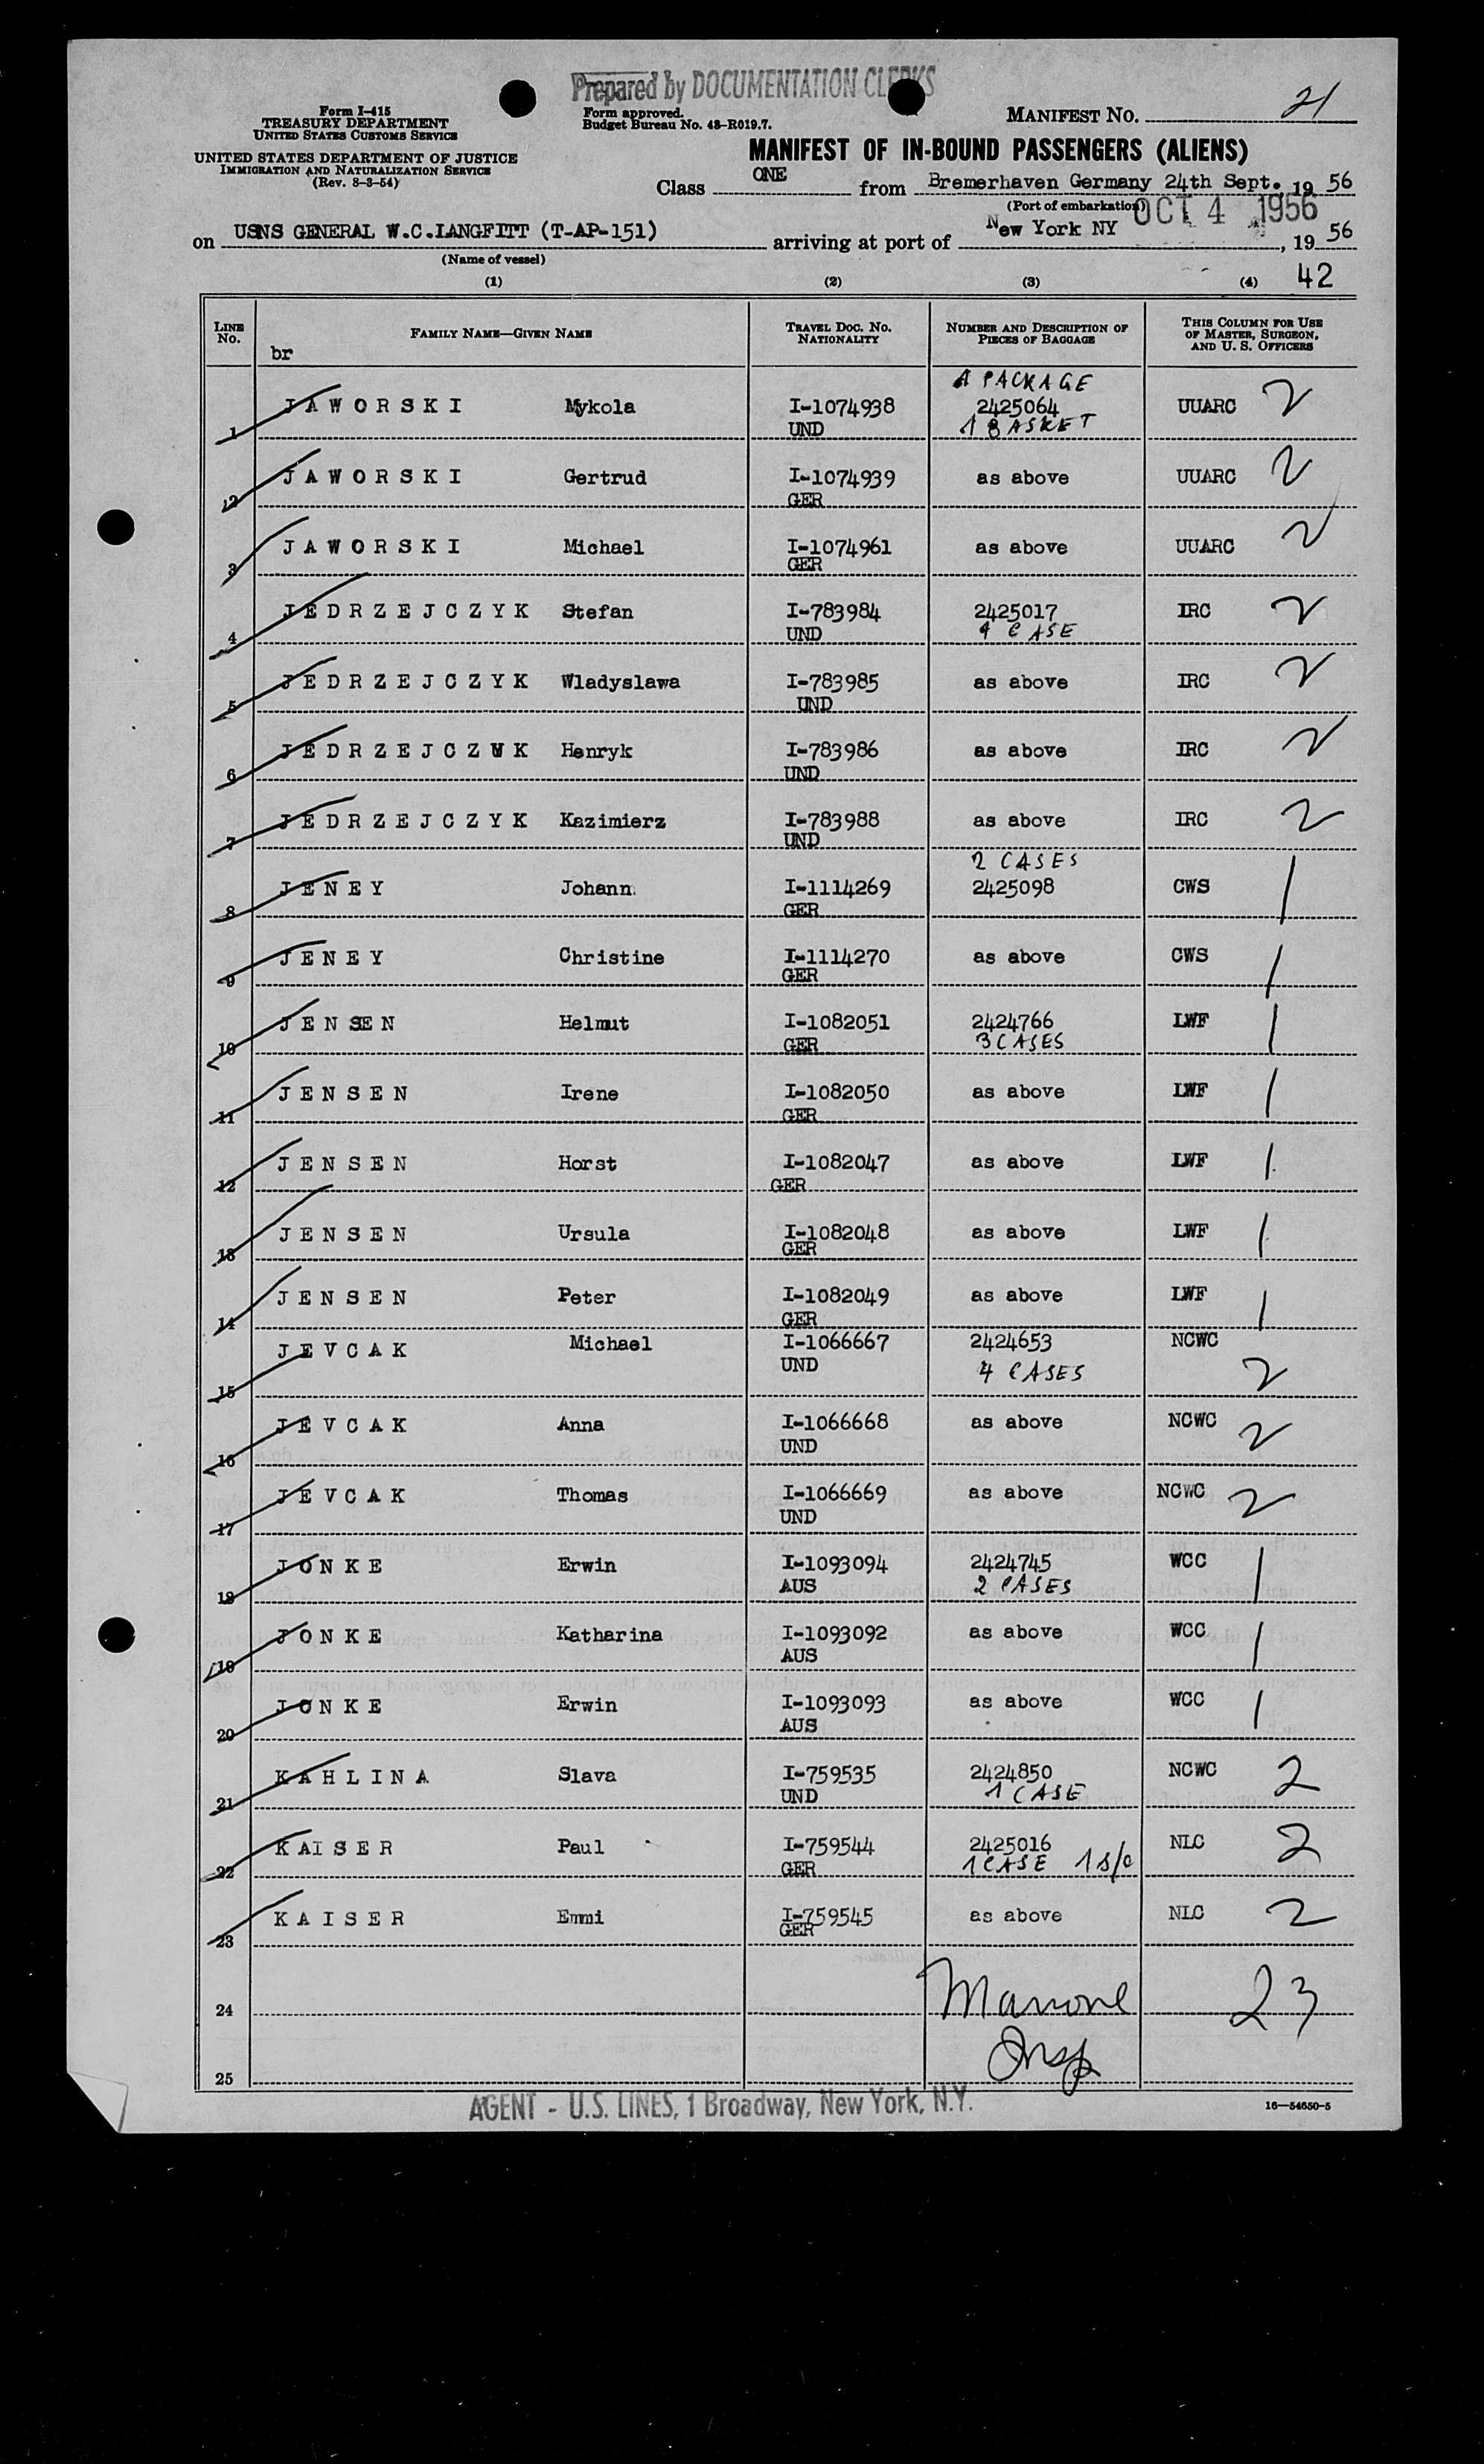 Prepared by DOCUMENTATION CLERKS
Form I-415
TREASURY DEPARTMENT
UNITED STATES CUSTOMS SERVICE
UNITED STATES DEPARTMENT OF JUSTICE
IMMIGRATION AND NATURALIZATION SERVICE
(Rev. 8-3-54)
Form approved.
Budget Bureau No. 43-R019.7.
MANIFEST NO. 21
MANIFEST OF IN-BOUND PASSENGERS (ALIENS)
Class ONE from Bremerhaven Germany 24th Sept., 19 56
(Port of embarkation) OCT 4 1956
on USNS GENERAL W.C.LANGFITT (T-AP-151) arriving at port of New York NY, 19 56
(Name of vessel)
(1) (2) (3) (4) 42
LINE NO. FAMILY NAME—GIVEN NAME TRAVEL DOC. NO. NATIONALITY NUMBER AND DESCRIPTION OF PIECES OF BAGGAGE THIS COLUMN FOR USE OF MASTER, SURGEON, AND U. S. OFFICERS
br
PACKAGE
1 JAWORSKI Mykola I-1074938 2425064 UUARC 2
UND 1 BASKET
2 JAWORSKI Gertrud I-1074939 as above UUARC 2
GER
3 JAWORSKI Michael I-1074961 as above UUARC 2
GER
4 JEDRZEJCZYK Stefan I-783984 2425017 IRC 2
UND CASE
5 JEDRZEJCZYK Wladyslawa I-783985 as above IRC 2
UND
6 JEDRZEJCZWK Henryk I-783986 as above IRC 2
UND
7 JEDRZEJCZYK Kazimierz I-783988 as above IRC 2
UND
2 CASES
8 JENEY Johann I-1114269 2425098 CWS 1
GER
9 JENEY Christine I-1114270 as above CWS 1
GER
10 JENSEN Helmut I-1082051 2424766 LWF 1
GER 3 CASES
11 JENSEN Irene I-1082050 as above LWF 1
GER
12 JENSEN Horst I-1082047 as above LWF 1
GER
13 JENSEN Ursula I-1082048 as above LWF 1
GER
14 JENSEN Peter I-1082049 as above LWF 1
GER
15 JEVCAK Michael I-1066667 2424653 NCWC 2
UND 4 CASES
16 JEVCAK Anna I-1066668 as above NCWC 2
UND
17 JEVCAK Thomas I-1066669 as above NCWC 2
UND
18 JONKE Erwin I-1093094 2424745 WCC 1
AUS 2 CASES
19 JONKE Katharina I-1093092 as above WCC 1
AUS
20 JONKE Erwin I-1093093 as above WCC 1
AUS
21 KAHLINA Slava I-759535 2424850 NCWC 2
UND 1 CASE
22 KAISER Paul I-759544 2425016 NLC 2
GER 1 CASE 1 s/c
23 KAISER Emmi I-759545 as above NLC 2
GER
24 23
Insp
25
AGENT - U.S. LINES, 1 Broadway, New York, N.Y.
16—54650-5